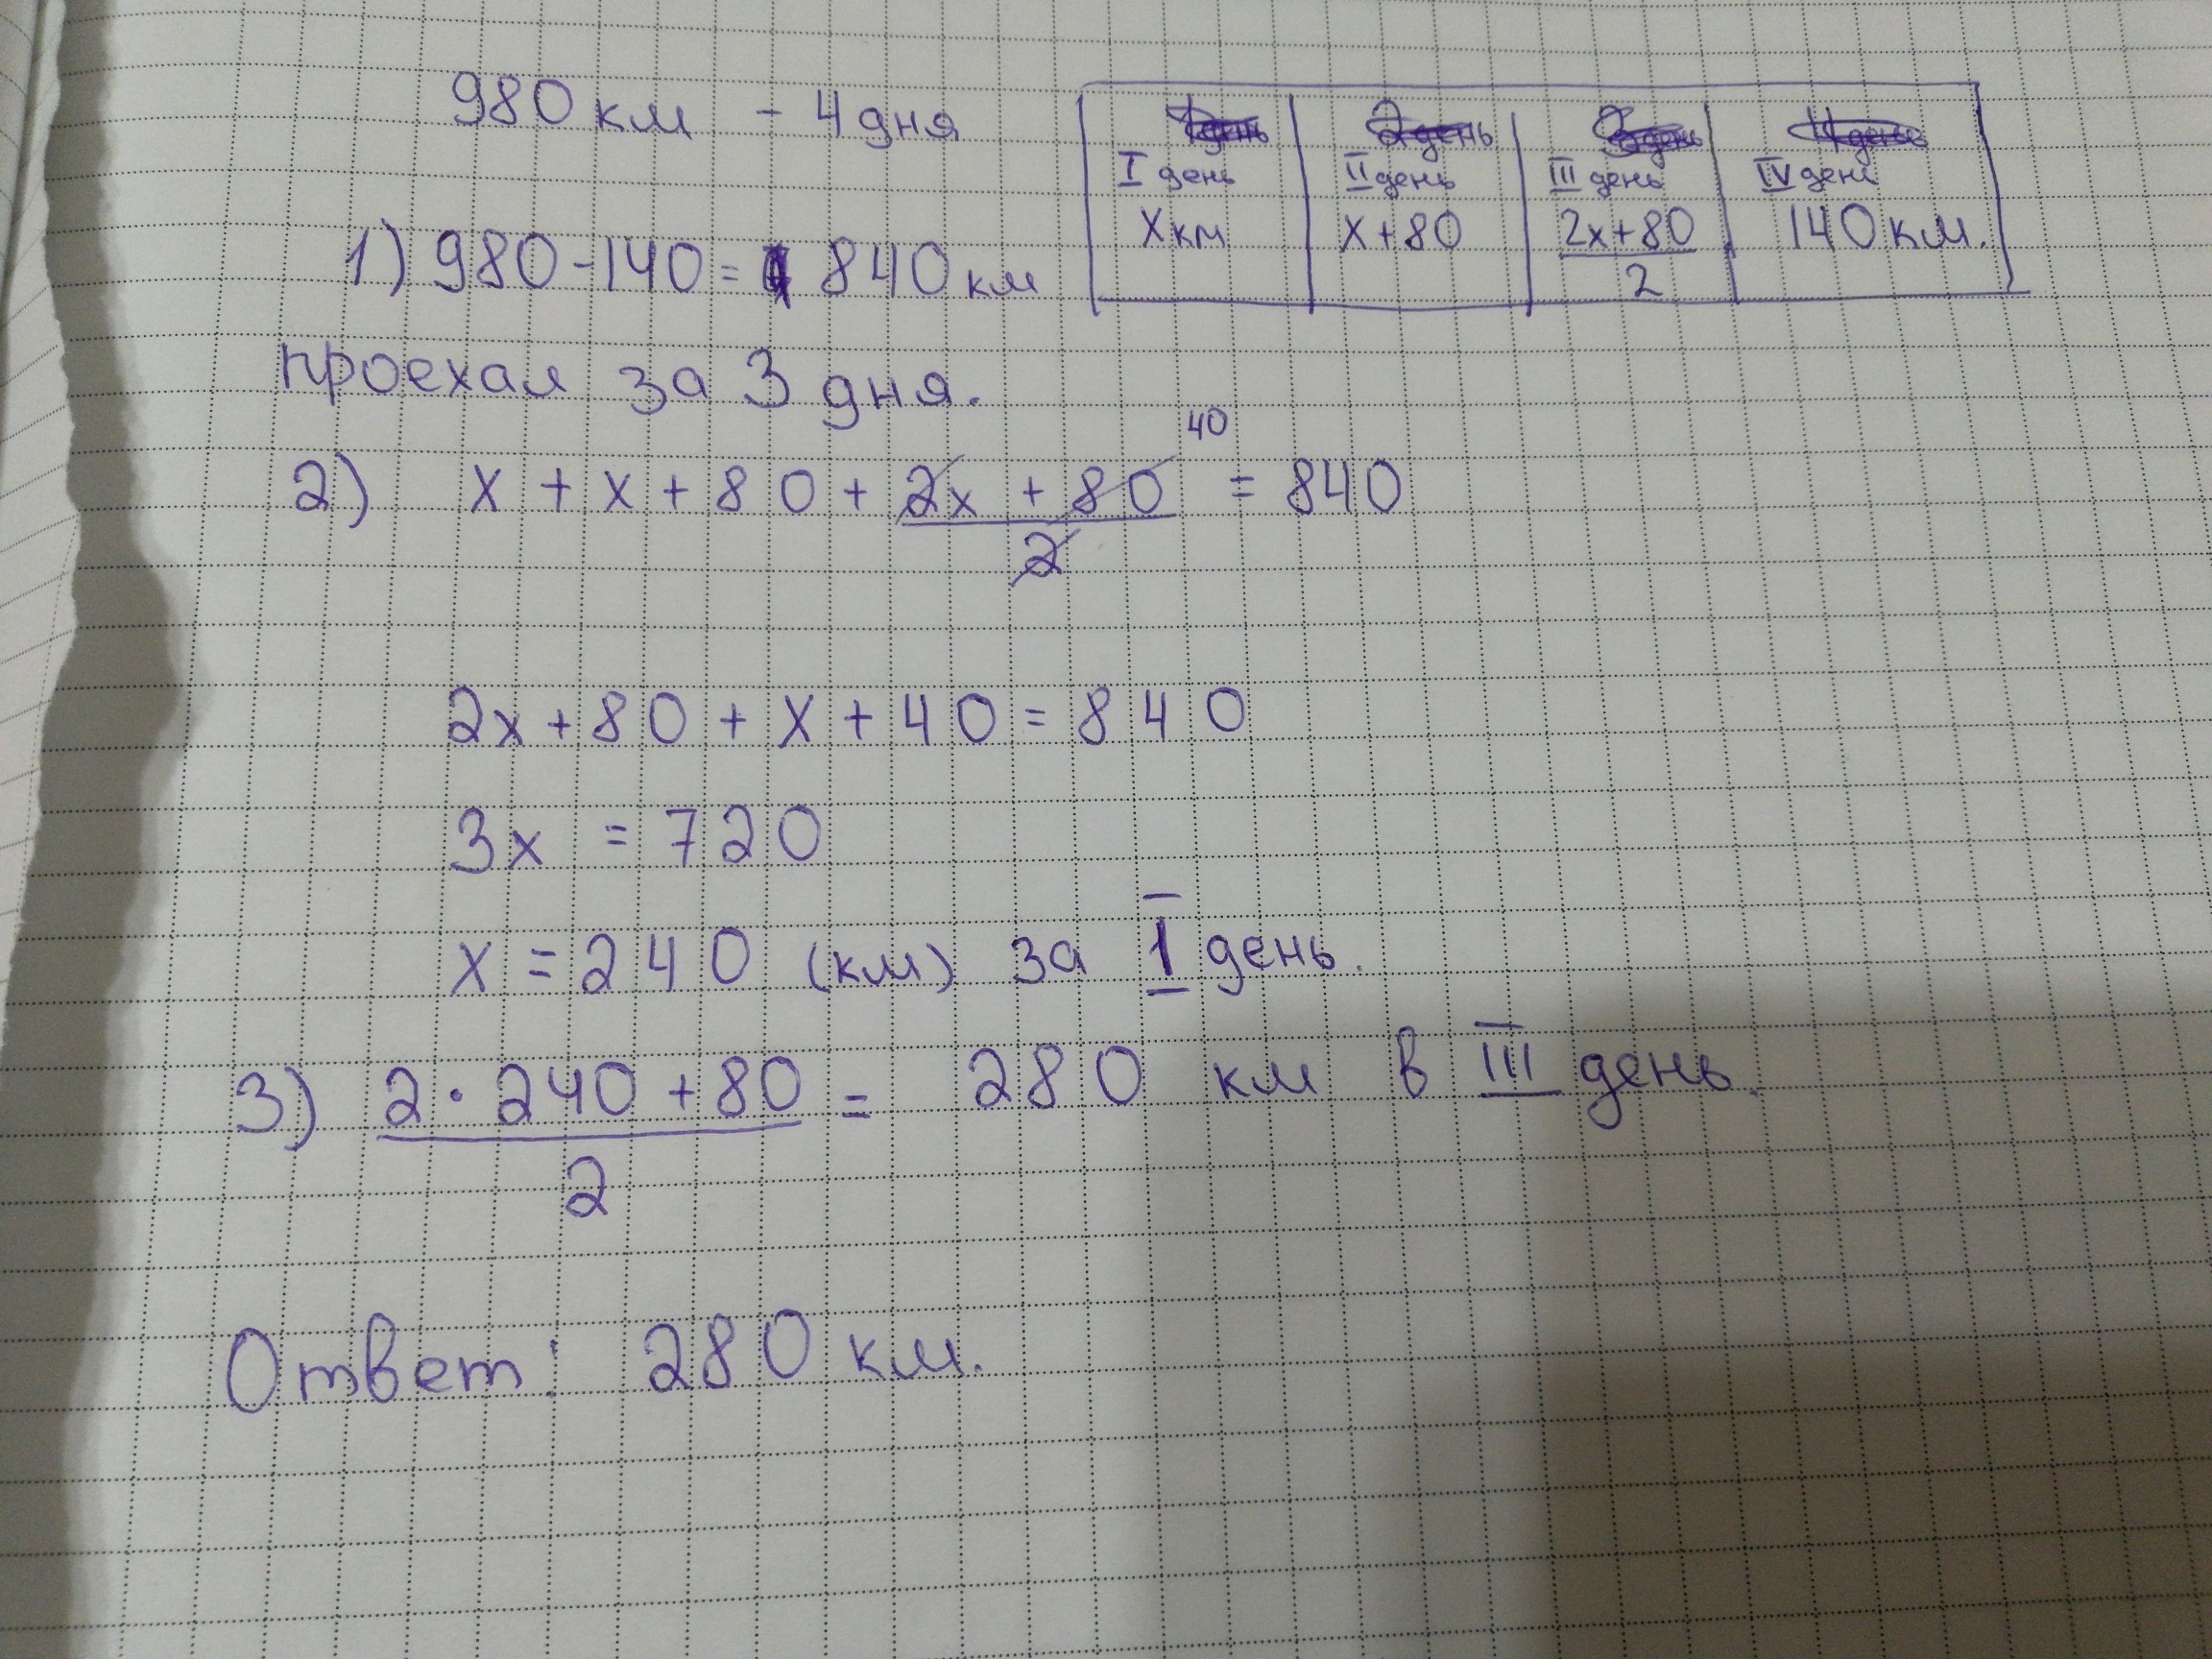 980 км - 4 дня
I день II день III день IV ден
X км X + 80 2x + 80 140 км.
2
1) 980 - 140 = 840 км
проехал за 3 дня.
40
2) x + x + 80 + 2x + 80 = 840
2
2x + 80 + x + 40 = 840
3x = 720
x = 240 (км) за I день.
3) 2 · 240 + 80 = 280 км в III день.
2
Ответ: 280 км.